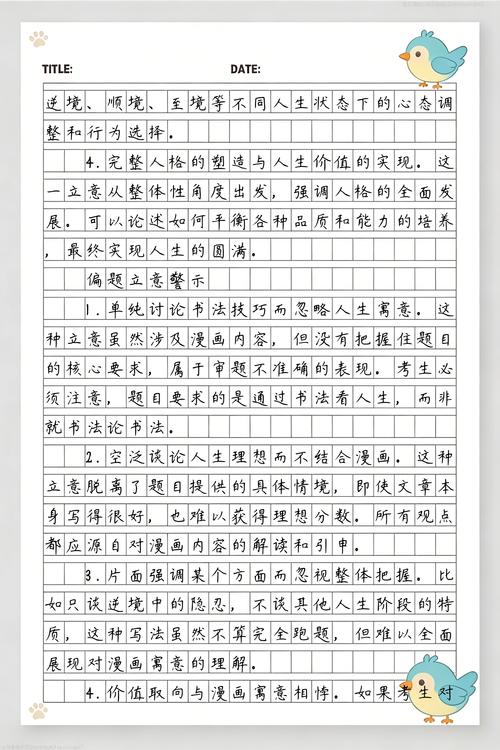 TITLE: DATE:
逆境、顺境、至境等不同人生状态下的心态调
整和行为选择。
4.完整人格的塑造与人生价值的实现。这
一立意从整体性角度出发，强调人格的全面发
展。可以论述如何平衡各种品质和能力的培养
，最终实现人生的圆满。
偏题立意警示
1.单纯讨论书法技巧而忽略人生寓意。这
种立意虽然涉及漫画内容，但没有把握住题目
的核心要求，属于审题不准确的表现。考生必
须注意，题目要求的是通过书法看人生，而非
就书法论书法。
2.空泛谈论人生理想而不结合漫画。这种
立意脱离了题目提供的具体情境，即使文章本
身写得很好，也难以获得理想分数。所有观点
都应源自对漫画内容的解读和引申。
3.片面强调某个方面而忽视整体把握。比
如只谈逆境中的隐忍，不谈其他人生阶段的特
质，这种写法虽然不算完全跑题，但难以全面
展现对漫画寓意的理解。
4.价值取向与漫画寓意相悖。如果考生对